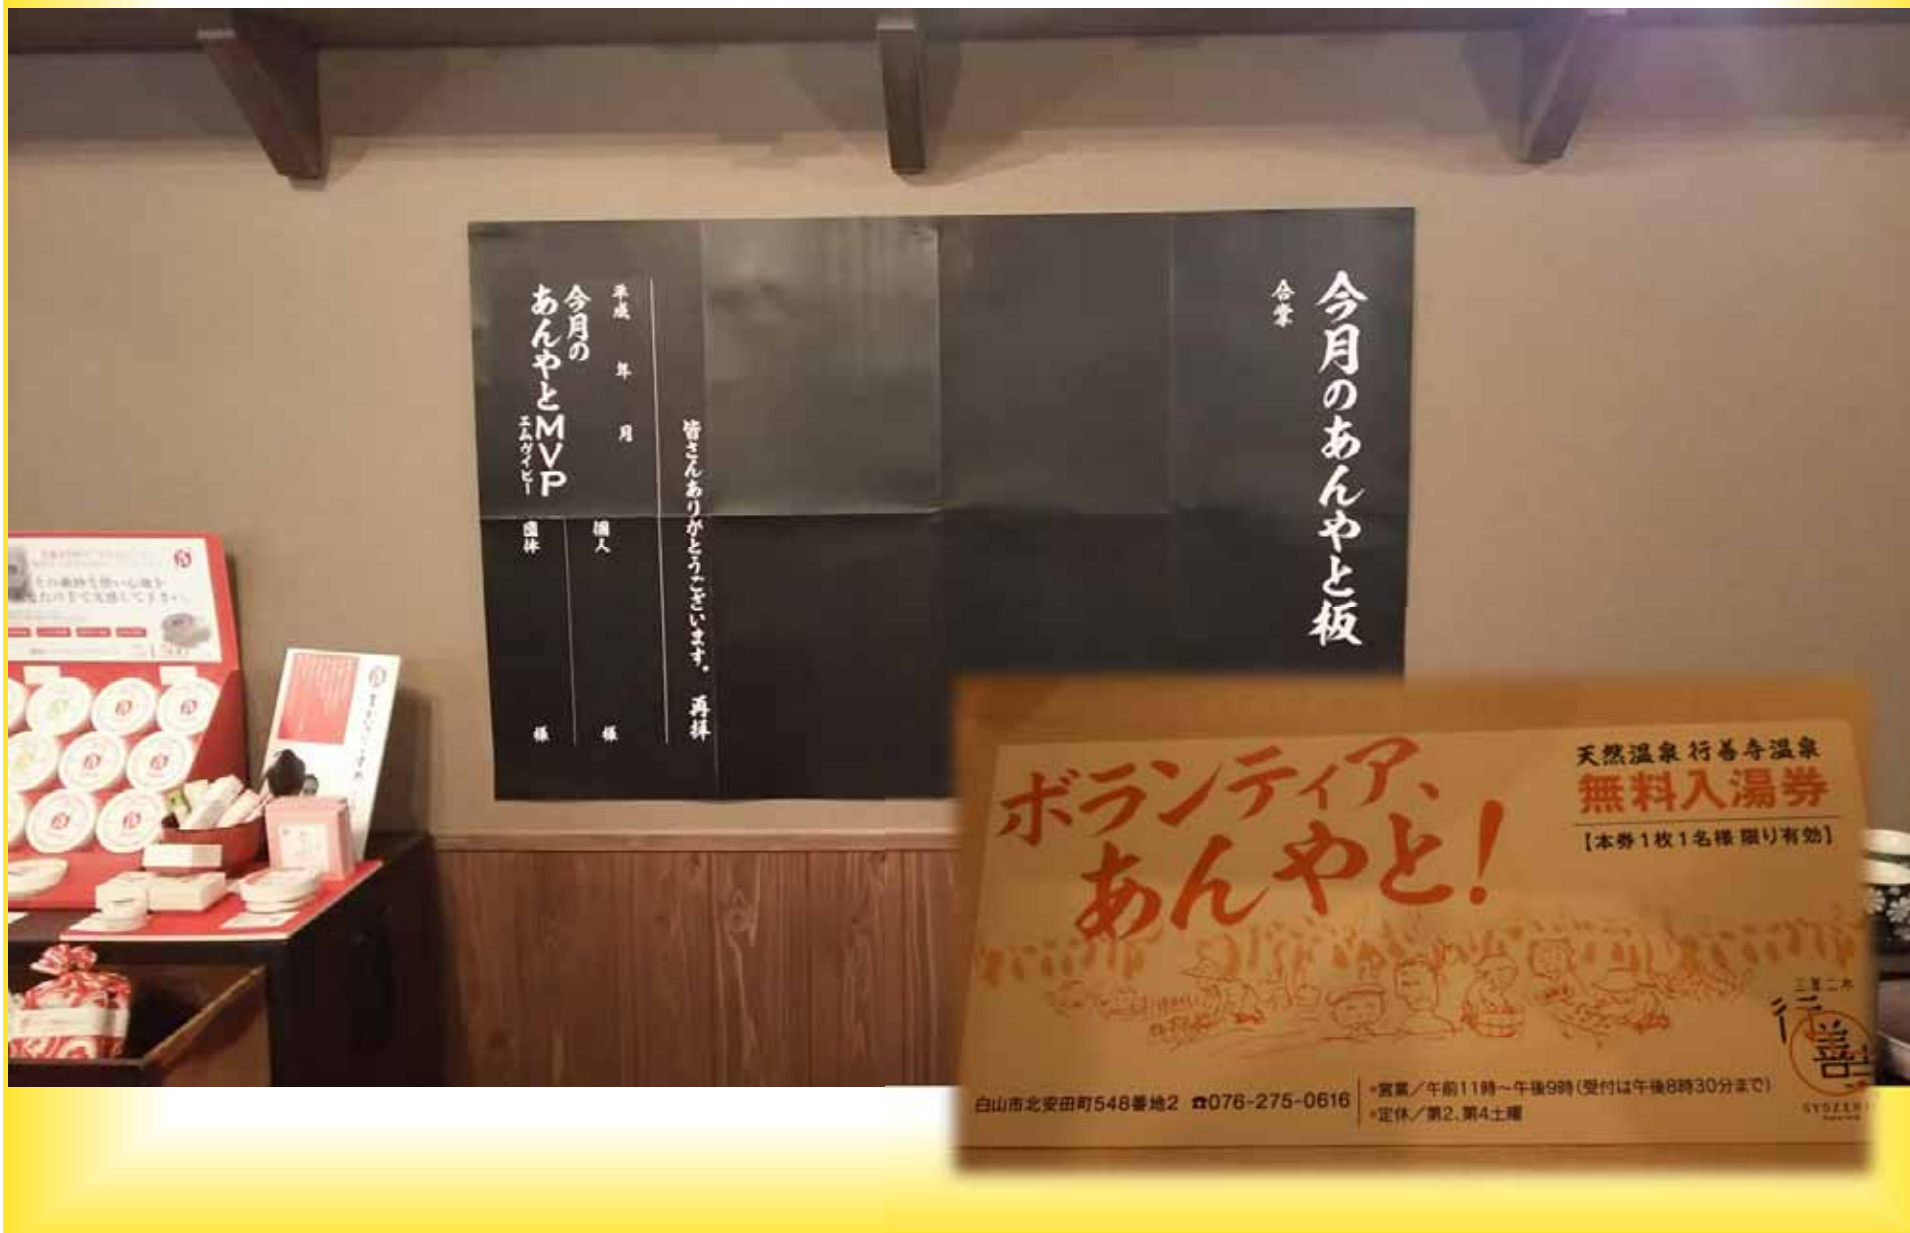 今月のあんやと板
合掌
皆さんありがとうございます。 再拝
平成 年 月
今月の
あんやとMVP
エムヴイピー
個人 様
団体 様
ボランティア、
あんやと!
天然温泉 行善寺温泉
無料入湯券
【本券1枚1名様限り有効】
三草二木
行善寺
白山市北安田町548番地2 ☎076-275-0616
•営業/午前11時~午後9時(受付は午後8時30分まで)
•定休/第2、第4土曜